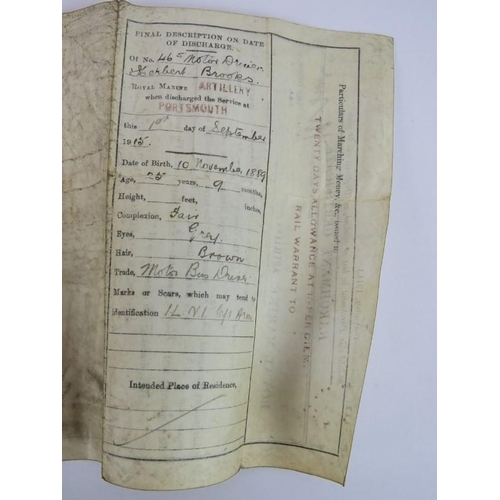 FINAL DESCRIPTION ON DATE
OF DISCHARGE.
Of No. 46 Motor Driver
Herbert Brooks.
ROYAL MARINE ARTILLERY
when discharged the Service at
PORTSMOUTH
this 1st day of September
1915.
Date of Birth, 10 November 1889
Age, 25 years, 9 months,
Height, feet, inches,
Complexion, Fair
Eyes, Grey
Hair, Brown
Trade, Motor Bus Driver
Marks or Scars, which may tend to
identification
Intended Place of Residence,
Particulars of Marching Money, &c., issued
TWENTY DAYS ALLOWANCE AT
RAIL WARRANT TO